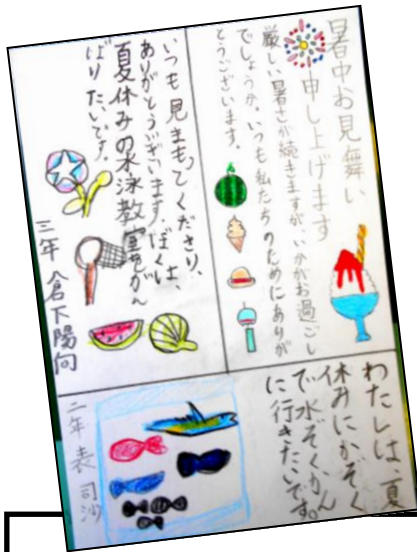 暑中お見舞い
申し上げます
厳しい暑さが続きますが、いかがお過ごし
でしょうか。いつも私たちのためにありが
とうございます。
いつも見まもってくださり、
ありがとうございます。ぼくは、
夏休みの水泳教室をがん
ばりたいです。
三年 倉下陽向
わたしは、夏
休みにかぞく
で水ぞくかん
に行きたいです。
二年 表 司沙